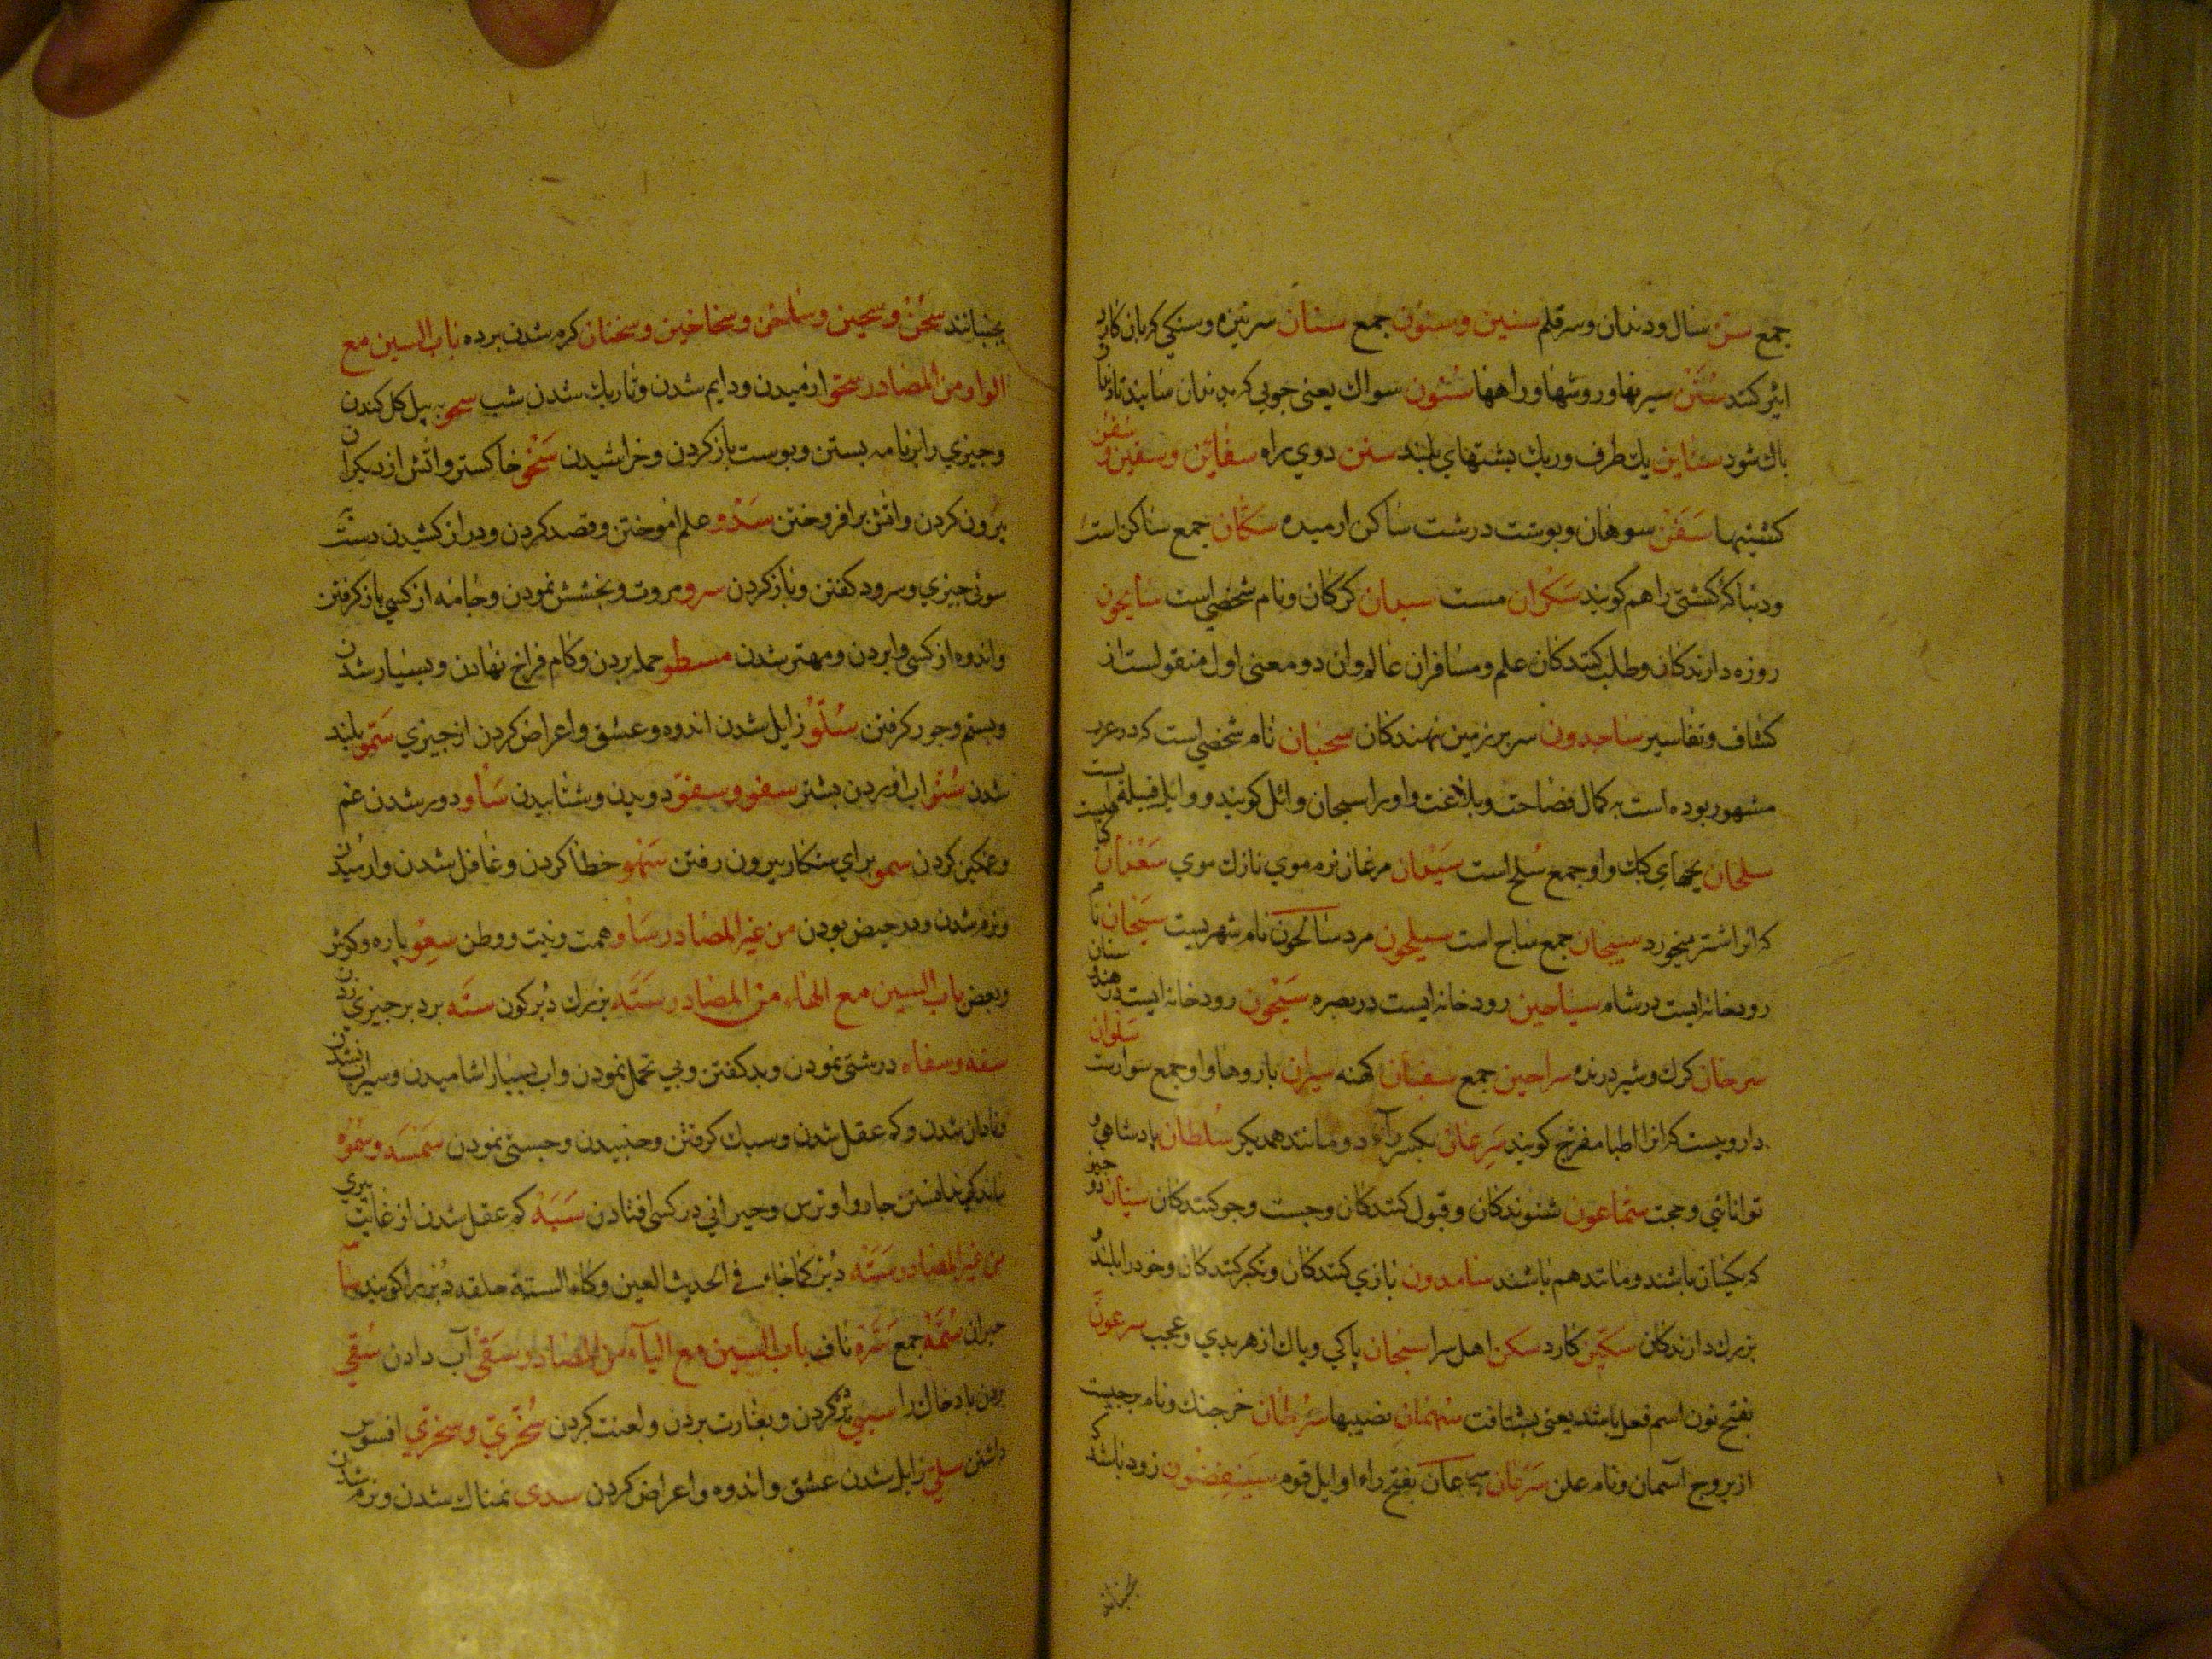 جمع سن سال و دندان و سر قلم سنین و سنون جمع سنان سر نیزه و سنکی که بان کارد
تیز کنند سنن سیرتها و روشها و راهها سنون سواك یعنی جوبی که بدندان مالند تا دندان
باك شود سناین یك طرف و ریك بشتهای بلند سنن روی راه سفاین و سفین و سفن
کشتیها سفن سوهان و بوست درشت ساکن ارمیده سکان جمع ساکن است
و دنباله کشتی را هم کویند سکران مست سیدان کرکان و نام شخصی است سایحون
روزه دارندکان و طلب کنندکان علم و مسافران عالم و ان دو معنی اول منقولست از
کشاف و تفاسیر ساجدون سر بر زمین نهندکان سحبان نام شخصی است که در عرب
مشهور بوده است به کمال فصاحت و بلاغت و او را سحبان وائل کویند و وایل قبیله ایست
سلحان بچهای کبك و او جمع سلح است مرغان نرم موی نازك موی سعدان کیا
که انرا شتر میخورد سیجان جمع ساج است سیلحون مرد سالحون نام شهریست سیحان نام
رودخانه ایست در شام سیاحین رودخانه ایست در بصره سیحون رودخانه ایست در هند
سرحان کرك و شیر درنده سراحین جمع کهنه باروها و او جمع سوارست سلوان
دارویست که انرا اطبا مفرح کویند سرعان بکسر راء دو مانند همدیکر سلطان بادشاهی و
توانائی و حجت سماعون شنوندکان و قبول کنندکان و جست و جو کنندکان سیان دو جیز
که یکسان باشند و مانند هم باشند سامدون بازی کنندکان و تکبر کنندکان و خود را بلند و
بزرك دارندکان سکین کارد سکن اهل سرا سبحان پاکی و پاك از هر بدی و عجب سرعان
بفتح نون اسم فعل باشد یعنی بشتافت سهمان نصیبها سرطان خرجنك و نام برجیست
از بروج آسمان و نام علتی سرعان بفتح راء اوایل قوم سینغضون زود باشد که
بجنبانند
بجنبانند سخن و سخین و سخاخین و سخنان کرم شدن برده باب السین مع
الواو من المصادر سجو ارمیدن و دایم شدن و تاریك شدن شب سحو به بیل کل کندن
و جیزی را بر نامه بستن و بوست باز کردن و خراشیدن سخو خاکستر و اتش از دیکران
برون کردن و اتش برافروختن سدو علم اموختن و قصد کردن و دراز کشیدن دست
سوی جیزی و سرود کفتن و باز کردن سرو مروت و بخشش نمودن و جامه از کسی باز کرفتن
و اندوه از کسی وا بردن و مهتر شدن سطو حمله بردن و کام فراخ نهادن و بسیار شدن
و بستم و جور کرفتن سلو زایل شدن اندوه و عشق و اعراض کردن از جیزی سمو بلند
شدن سنو اب اوردن بشتر سفو و سفو دویدن و شتابیدن سأو دور شدن غم
و غمکین کردن سمو برای شکار بیرون رفتن سهو خطا کردن و غافل شدن و ارمیدن
و نرم شدن و در حیض بودن من غیر المصادر سأو همت و نیت و وطن سعو پاره
و بعض باب السین مع الهاء من المصادر سته بزرك دبر کون سته برد بر جیزی زدن
سفه و سفاه درشتی نمودن و بد کفتن و بی تحمل نمودن و اب بسیار اشامیدن و سیراب نشدن
و نادان شدن و کم عقل شدن و سبك کرفتن و جنبیدن و جستی نمودن و سموه
ماندکی نداسنتن جاروا و ترس و حیرانی در کسی افتادن سبه کم عقل شدن از غایت بیری
من غیر المصادر سته دبر کما جاء فی الحدیث العین وکاء السته حلقه دبر را کویند
حیران سمه جمع ناف باب السین مع الیاء من المصادر سقی آب دادن سقی
بردن باد خاك را سبی برده کردن و بغارت بردن و لعنت کردن سخری و سخری افسوس
داشتن سلی زایل شدن عشق و اندوه و اعراض کردن سدی نمناك شدن و نرم شدن